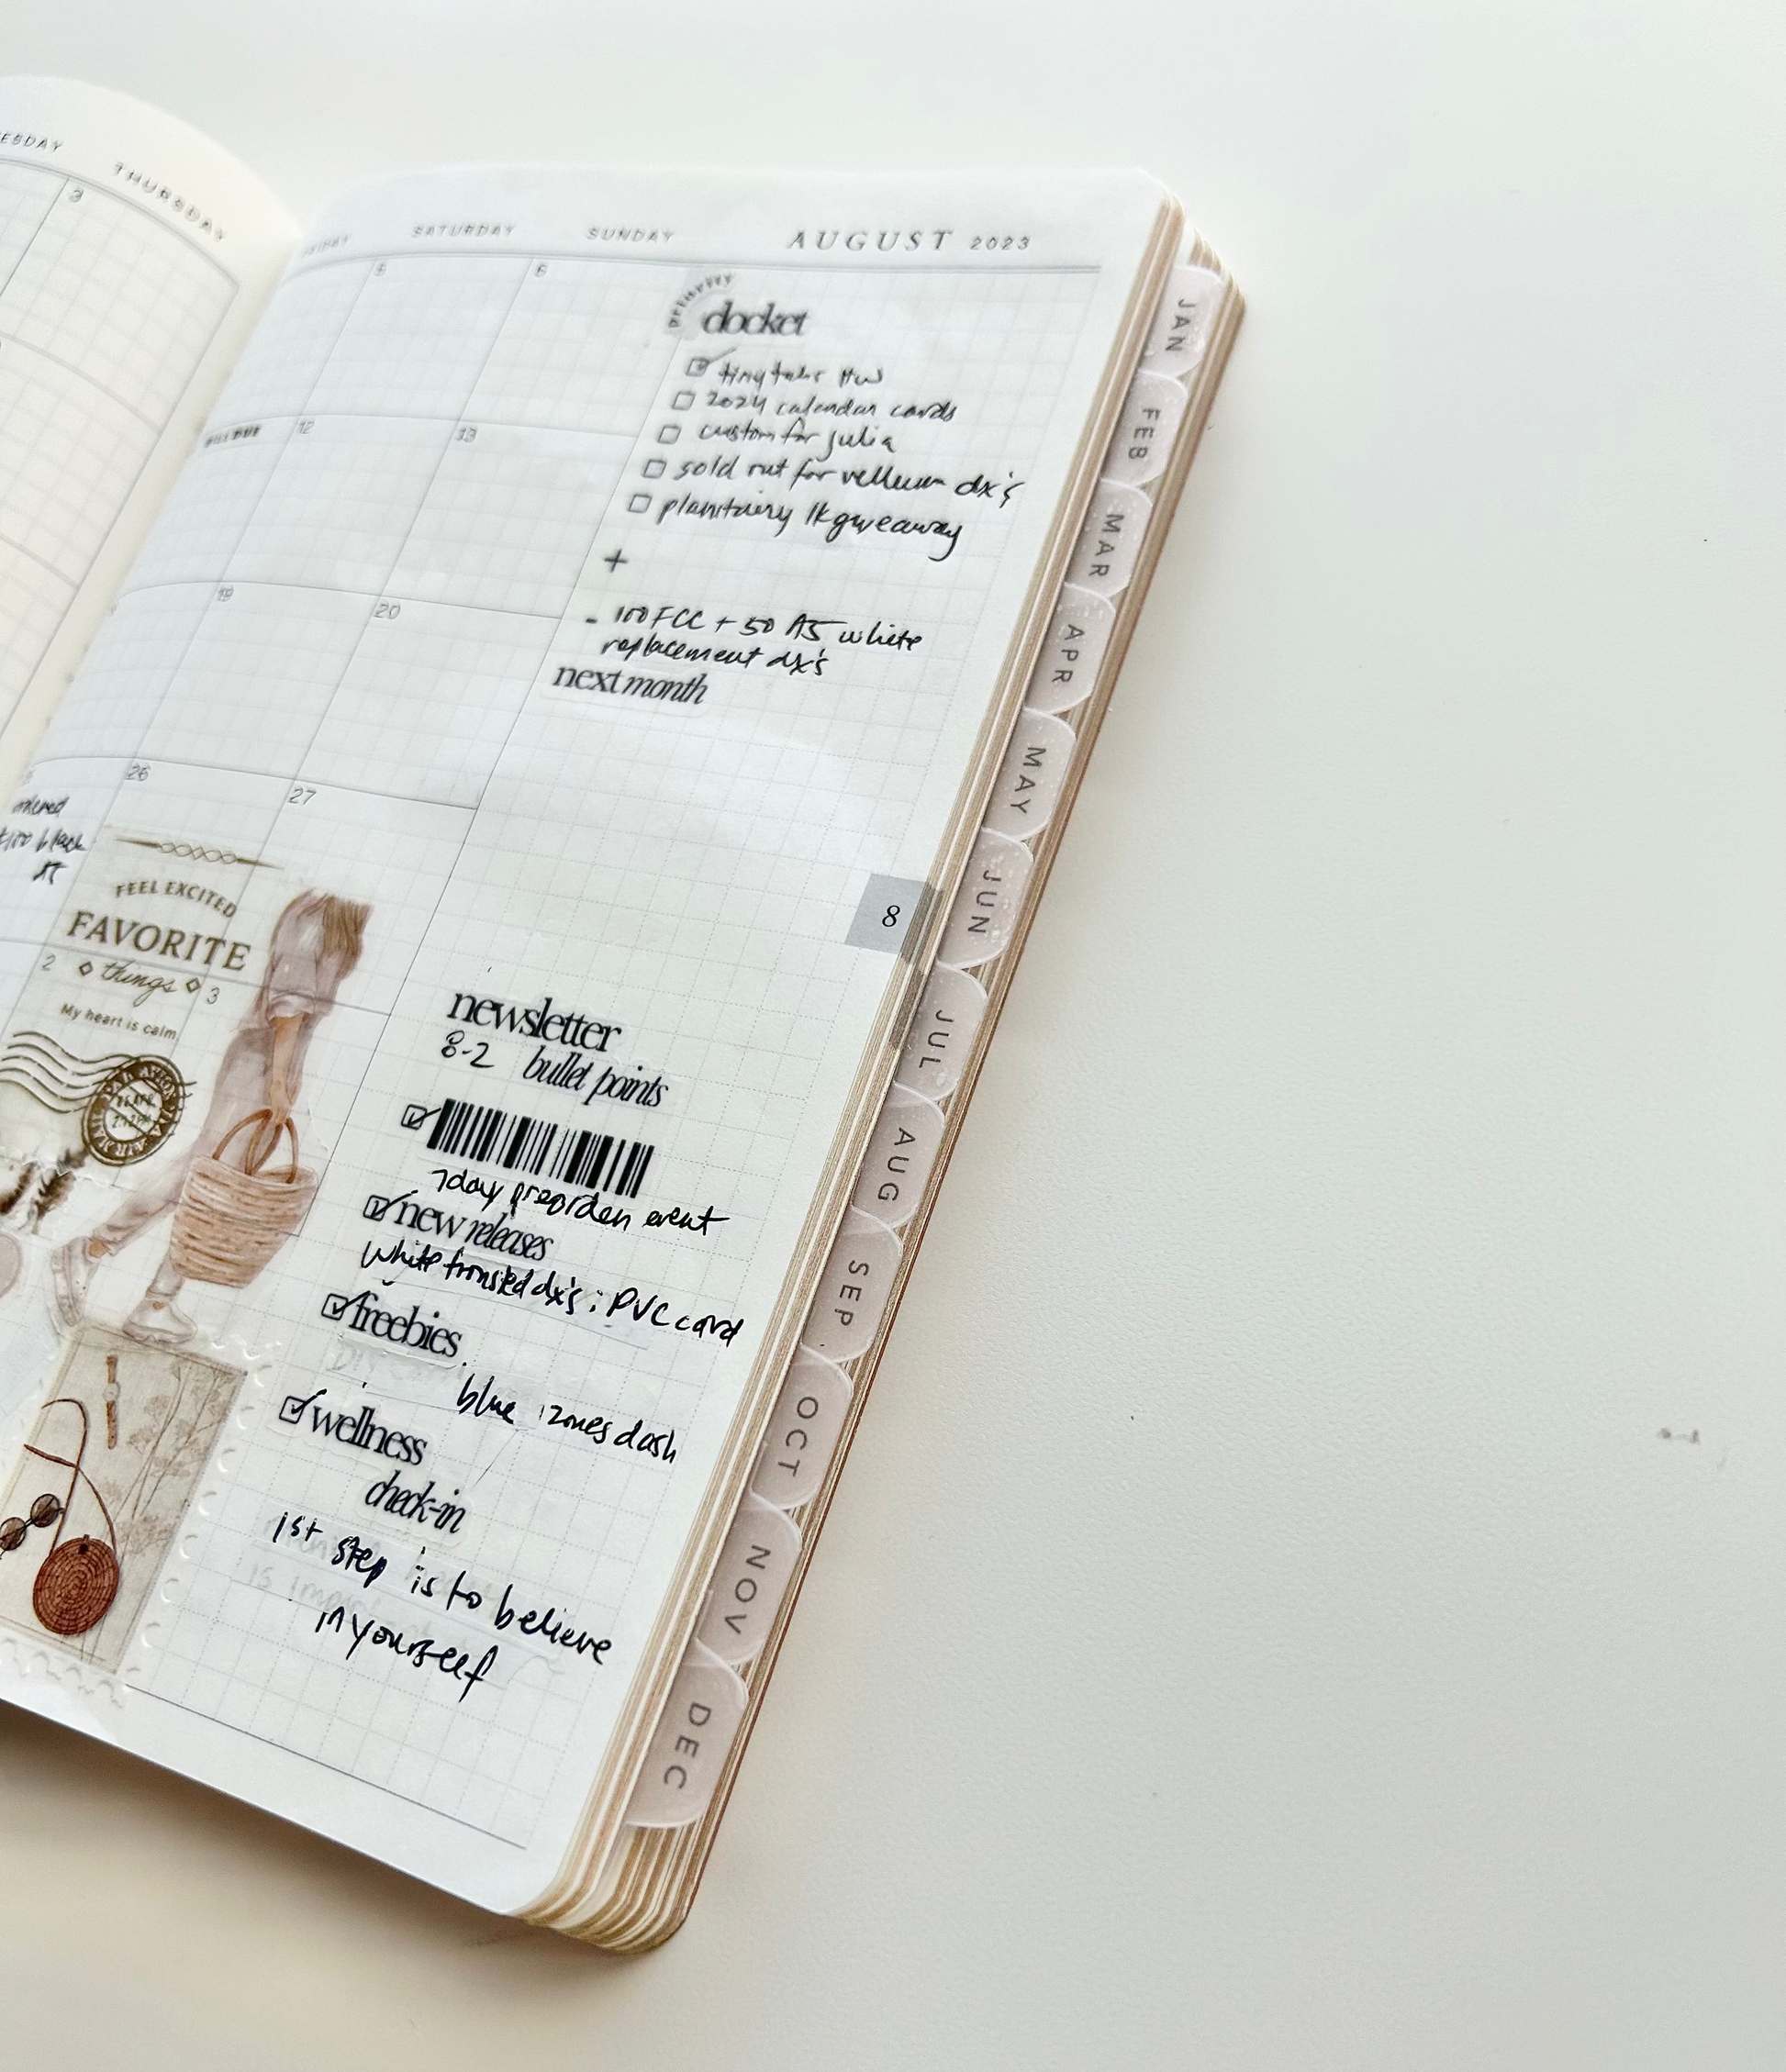 THURSDAY
3
SATURDAY
SUNDAY
AUGUST 2023
5
6
docket
2024 calendar cards
custom for julia
sold out for vellum dx's
1k giveaway
+
- 100 FCC + 50 A5 white
replacement dx's
next month
BILL DUE
12
13
19
20
26
27
ordered
black
FEEL EXCITED
FAVORITE
things
2
3
My heart is calm
PAR AVION
8
newsletter
8-2 bullet points
7day preorder event
new releases
White dx's : PVC card
freebies
blue zones dash
wellness
check-in
1st step is to believe
in yourself
JAN
FEB
MAR
APR
MAY
JUN
JUL
AUG
SEP
OCT
NOV
DEC